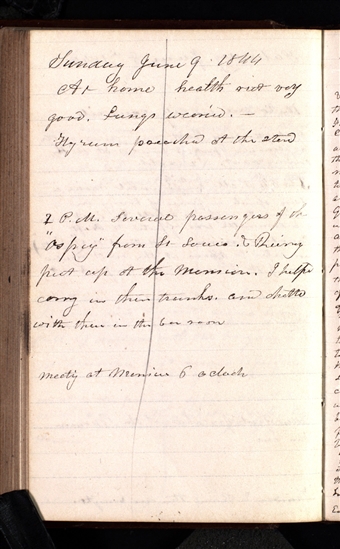 Sunday June 9. 1844
At home health not very
good. Lungs wearied. —
Hyrum preached at the stand
2 P.M. Several passengers of the
"Osprey" from St Louis & 
put up at the Mansion. I helped
carry in their trunks. and chatted
with them in the bar room
meeting at Mansion 6 oclock